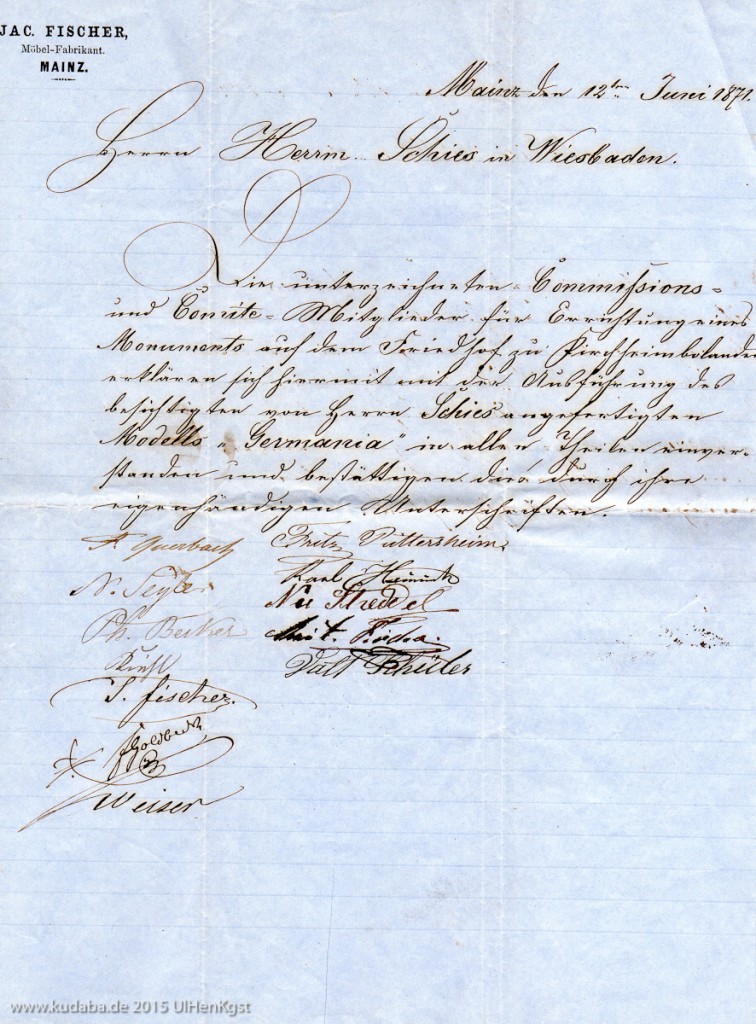 JAC. FISCHER,
Möbel-Fabrikant.
MAINZ.
Mainz den 12ten Juni 1871.
Herrn Herrm. Schies in Wiesbaden.
Die unterzeichneten Commissions-
und Comite-Mitglieder für Errichtung eines
Monuments auf dem Friedhof zu Kirchheimbolanden
erklären sich hiermit mit der Ausführung des
besichtigten von Herrn Schies angefertigten
Modells „Germania" in allen Theilen einver-
standen und bestättigen dies durch ihre
eigenhändigen Unterschriften.
A Querbach Fritz
N. Seyler Karl
Ph. Becker
J. Fischer.
Goldbeck
Weiser
www.kudaba.de 2015 UlHenKgst